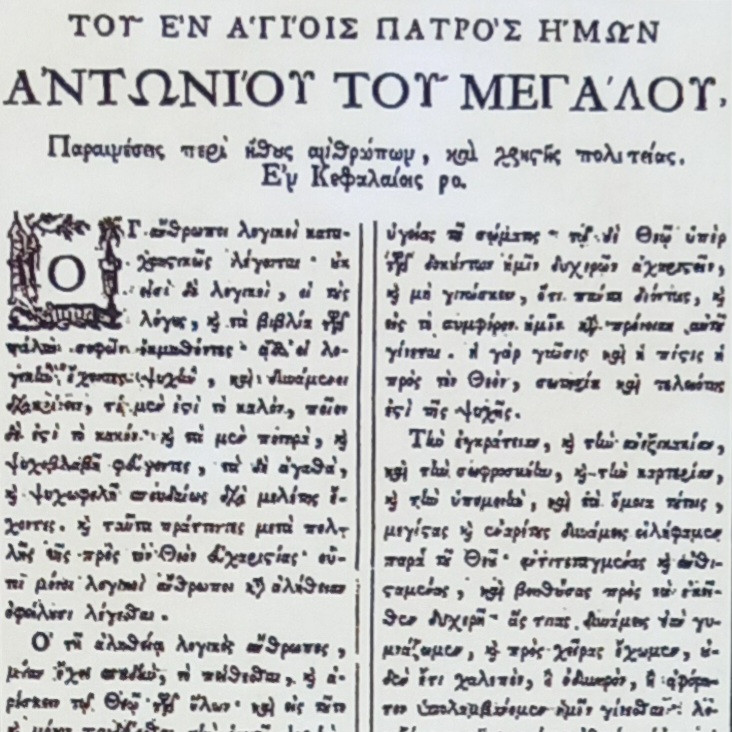 ΤΟΥ ἘΝ ἉΓΊΟΙΣ ΠΑΤΡῸΣ ἩΜΩ͂Ν
ἈΝΤΩΝΊΟΥ ΤΟΥ͂ ΜΕΓΆΛΟΥ,
Παραινέσεις περὶ ἤθους ἀνθρώπων, καὶ χρηστῆς πολιτείας.
Ἐν Κεφαλαίοις ρο.
ΟΙ ἄνθρωποι λογικοὶ κατα-
χρηστικῶς λέγονται· οὐκ
εἰσὶ δὲ λογικοὶ, οἱ τοὺς
λόγους, καὶ τὰ βιβλία τῶν
πάλαι σοφῶν ἐκμαθόντες· ἀλλ' οἱ λο-
γικὴν ἔχοντες ψυχὴν, καὶ δυνάμενοι
διακρῖναι, τί μέν ἐστι τὸ καλὸν, ποῖον
δέ ἐστι τὸ κακόν· καὶ τὰ μὲν πονηρὰ, καὶ
ψυχοβλαβῆ φεύγοντες, τὰ δὲ ἀγαθὰ,
καὶ ψυχωφελῆ σπουδαίως διὰ μελέτης ἔ-
χοντες. καὶ ταῦτα πράττοντες μετὰ πολ-
λῆς τῆς πρὸς τὸν Θεὸν εὐχαριστίας· οὗ-
τοι μόνοι λογικοὶ ἄνθρωποι κατ' ἀλήθειαν
ὀφείλουσι λέγεσθαι.
Ὁ τῇ ἀληθείᾳ λογικὸς ἄνθρωπος,
μίαν ἔχει σπουδὴν, τὸ πείθεσθαι, καὶ ἀ-
ρέσκειν τῷ Θεῷ τῶν ὅλων· καὶ εἰς τοῦτο
ὑγείας τοῦ σώματος· τῷ δὲ Θεῷ ὑπὲρ
τῶν δοκούντων ἡμῖν δυχερῶν ἀχαριστεῖν,
καὶ μὴ γινώσκειν, ὅτι πάντα δεόντως, καὶ
εἰς τὸ συμφέρον ἡμῖν κατὰ πρόνοιαν αὐτοῦ
γίνεται. ἡ γὰρ γνῶσις καὶ ἡ πίστις ἡ
πρὸς τὸν Θεὸν, σωτηρία καὶ τελειότης
ἐστὶ τῆς ψυχῆς.
Τὴν ἐγκράτειαν, καὶ τὴν ἀνεξικακίαν,
καὶ τὴν σωφροσύνην, καὶ τὴν καρτερίαν,
καὶ τὴν ὑπομονὴν, καὶ τὰ ὅμοια τούτοις,
μεγίστας καὶ ἐναρέτους δυνάμεις εἰλήφαμεν
παρὰ τοῦ Θεοῦ· ἀντιτεταγμένας καὶ ἀνθι-
σταμένας, καὶ βοηθούσας πρὸς τὰ ἐκεῖ-
θεν δυχερῆ· ἅς τινας δυνάμεις ἐὰν γυ-
μνάζωμεν, καὶ πρὸς χεῖρας ἔχωμεν, οὐ-
δὲν ἔτι χαλεπὸν, ἢ ὀδυνηρὸν, ἢ ἀφόρη-
τον ὑπολαμβάνομεν ἡμῖν γίνεσθαι· λο-